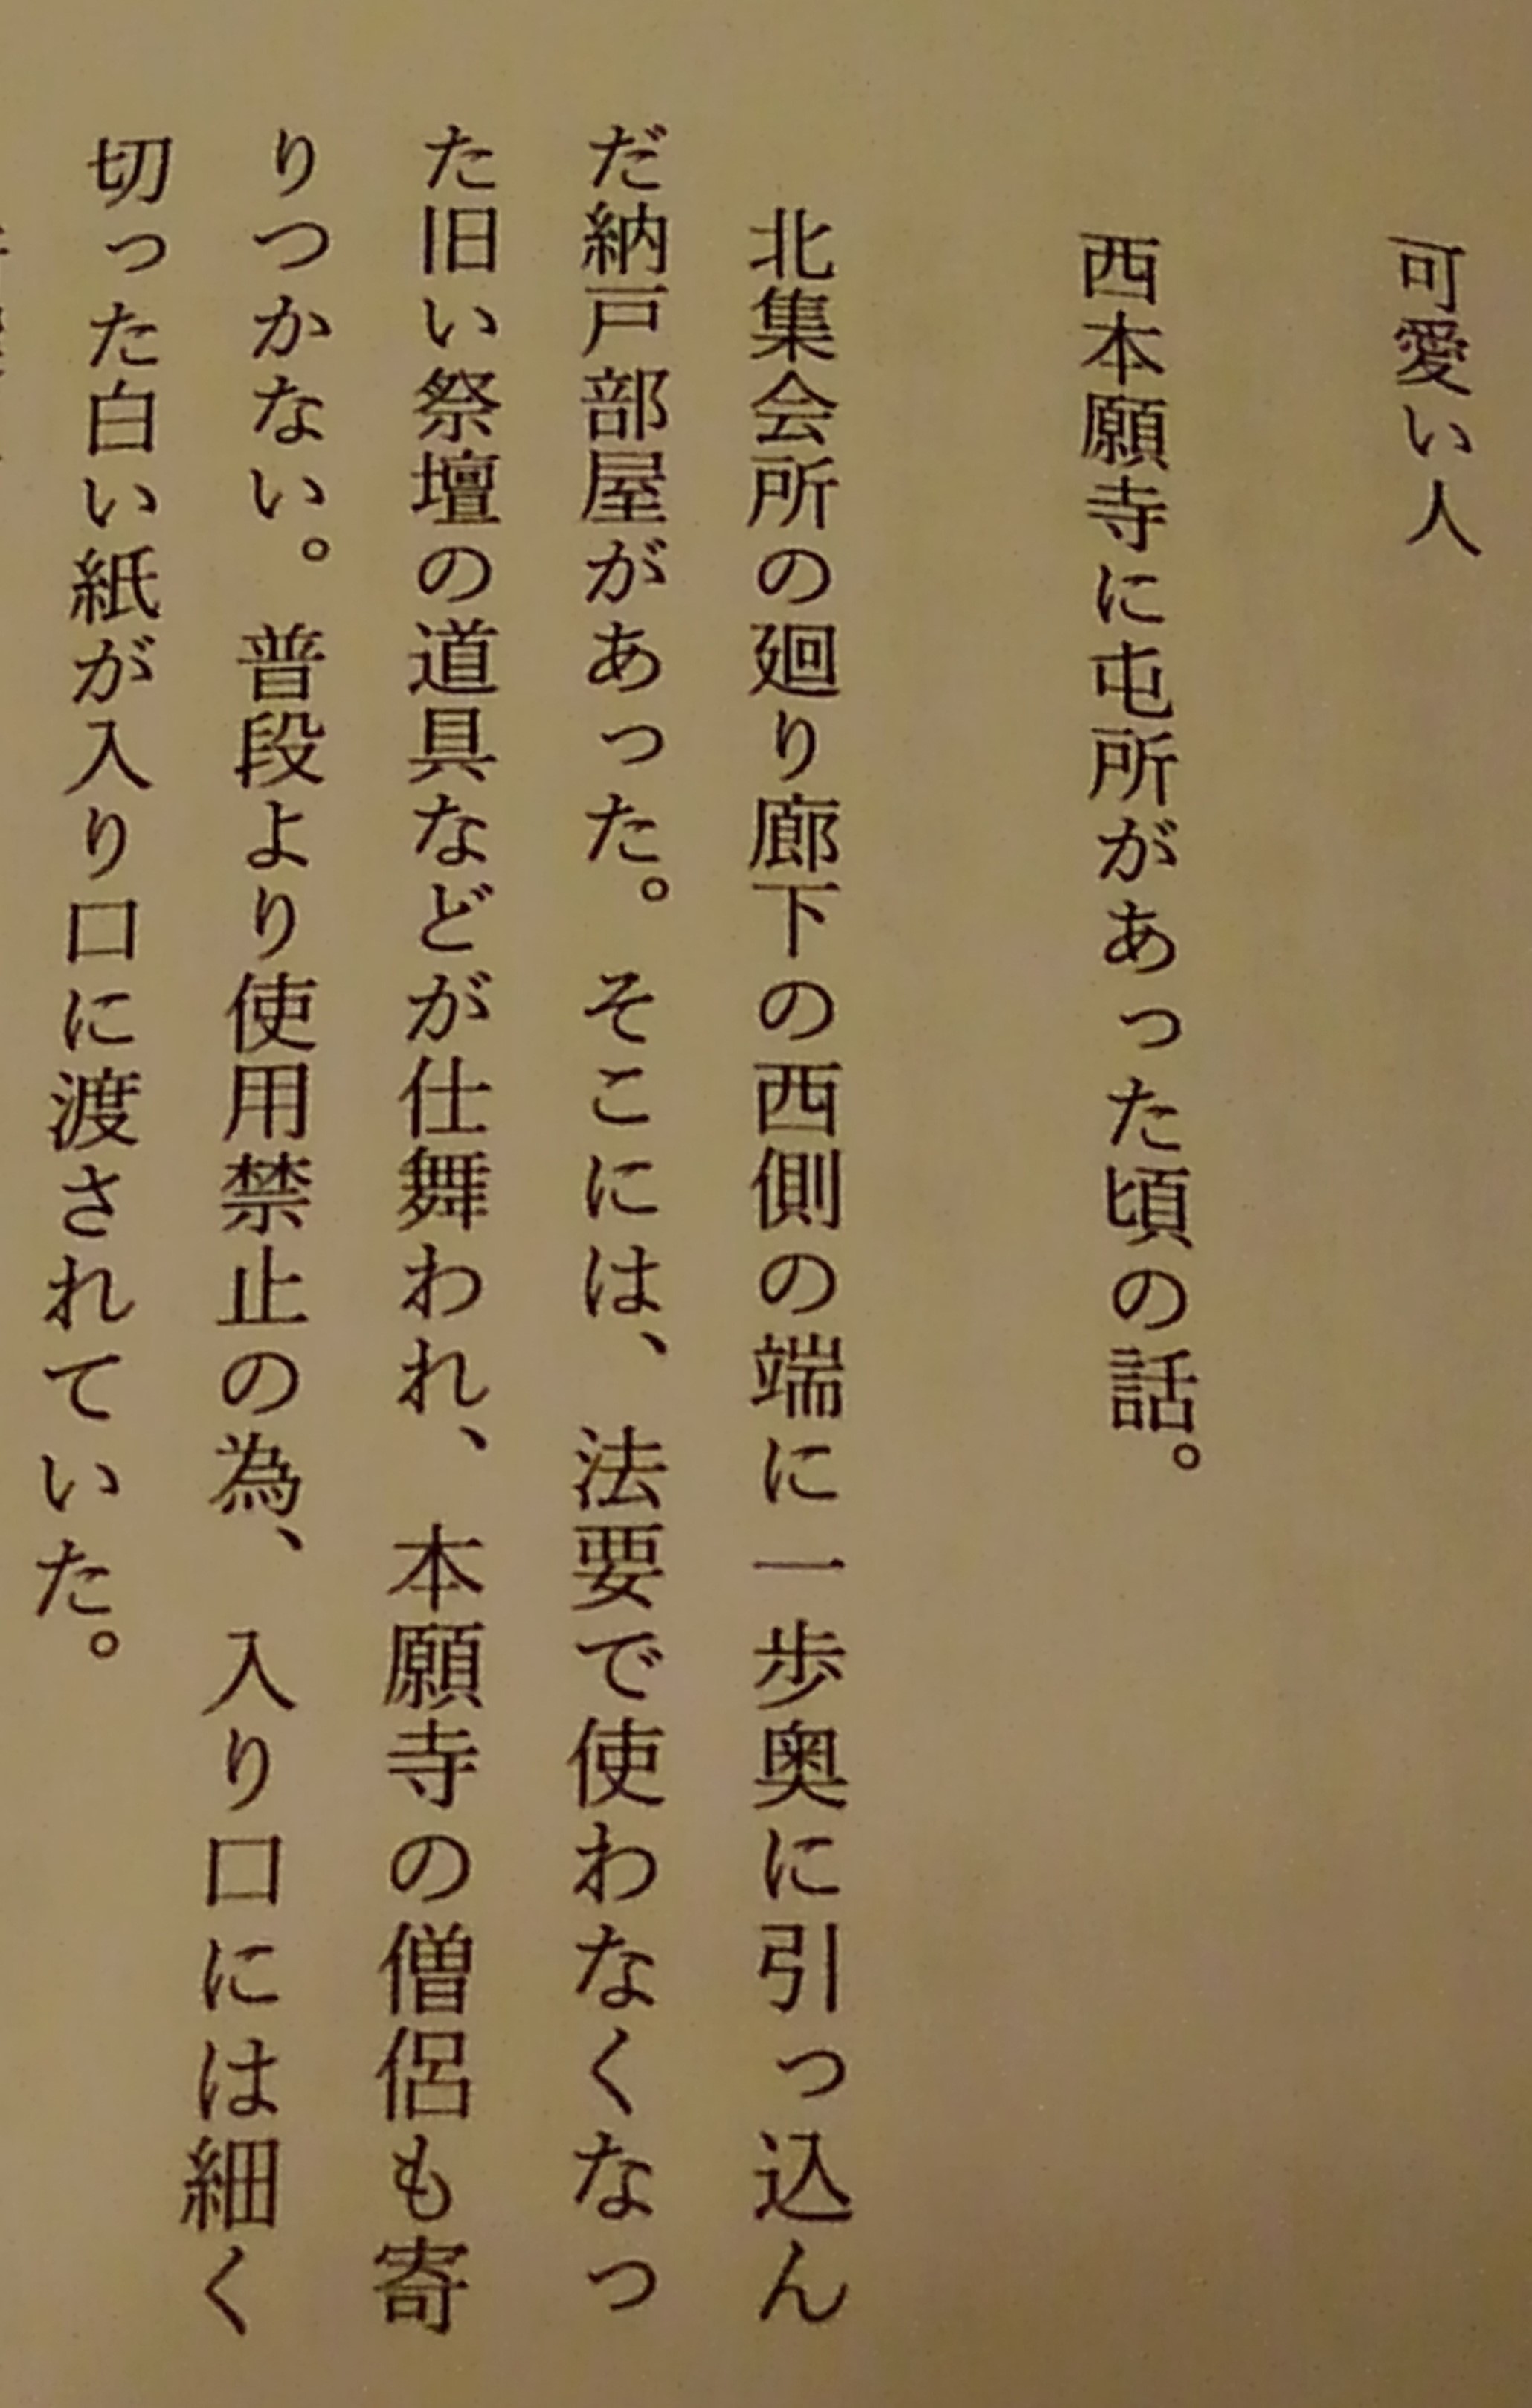 可愛い人
西本願寺に屯所があった頃の話。
北集会所の廻り廊下の西側の端に一歩奥に引っ込ん
だ納戸部屋があった。そこには、法要で使わなくなっ
た旧い祭壇の道具などが仕舞われ、本願寺の僧侶も寄
りつかない。普段より使用禁止の為、入り口には細く
切った白い紙が入り口に渡されていた。